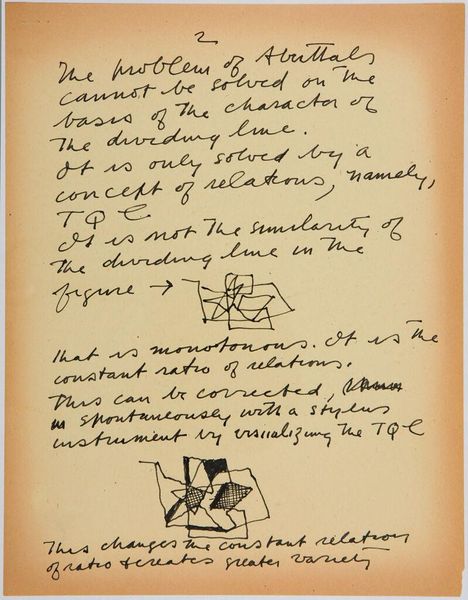 2
The problem of Abuttals
cannot be solved on the
basis of the character of
the dividing line.
It is only solved by a
concept of relations, namely,
T Q L
It is not the similarity of
the dividing line in the
figure →
that is monotonous. It is the
constant ratio of relations.
This can be corrected,
spontaneously with a stylus
instrument by visualizing the TQL
This changes the constant relation
of ratio & creates greater variety